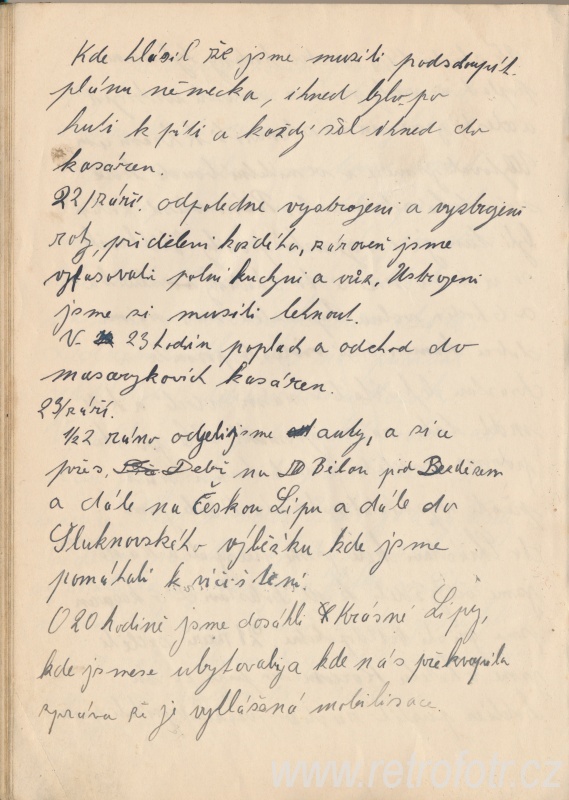 Kde hlásil že jsme musili podstoupit
plánu německa, ihned bylo po
huti k pití a každý šel ihned do
kasáren.
22/září. odpoledne vyzbrojeni a vyzbrojeni
roty, přidělení každého, zároveň jsme
vyfasovali polní kuchyni a vůz. Ustrojeni
jsme si musili lehnout.
V 23 hodin poplach a odchod do
masarykových kasáren.
23/září.
1/2 2 ráno odjeli jsme auty, a sice
přes, na Bělou pod Bezdězem
a dále na Českou Lípu a dále do
Šluknovského výběžku kde jsme
pomáhali k vičištění.
O 20 hodině jsme dosáhli Krásné Lípy,
kde jsme se ubytovali a kde nás překvapila
zpráva že je vyhlášená mobilisace.
www.retrofotr.cz